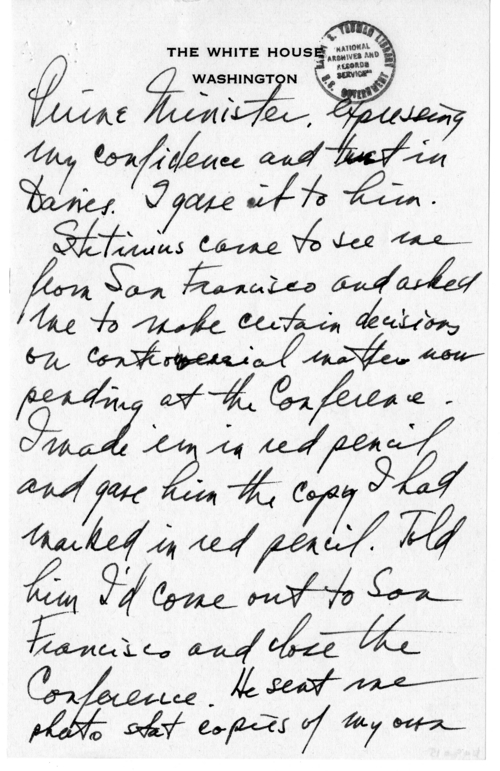 THE WHITE HOUSE
WASHINGTON
HARRY S. TRUMAN LIBRARY
NATIONAL
ARCHIVES AND
RECORDS
SERVICE
U.S. GOVERNMENT
Prime Minister, expressing
my confidence and trust in
Davies. I gave it to him.
Stetinius came to see me
from San Francisco and asked
me to make certain decisions
on controversial matters now
pending at the Conference.
I made 'em in red pencil
and gave him the copy I had
marked in red pencil. Told
him I'd come out to San
Francisco and close the
Conference. He sent me
photo stat copies of my own